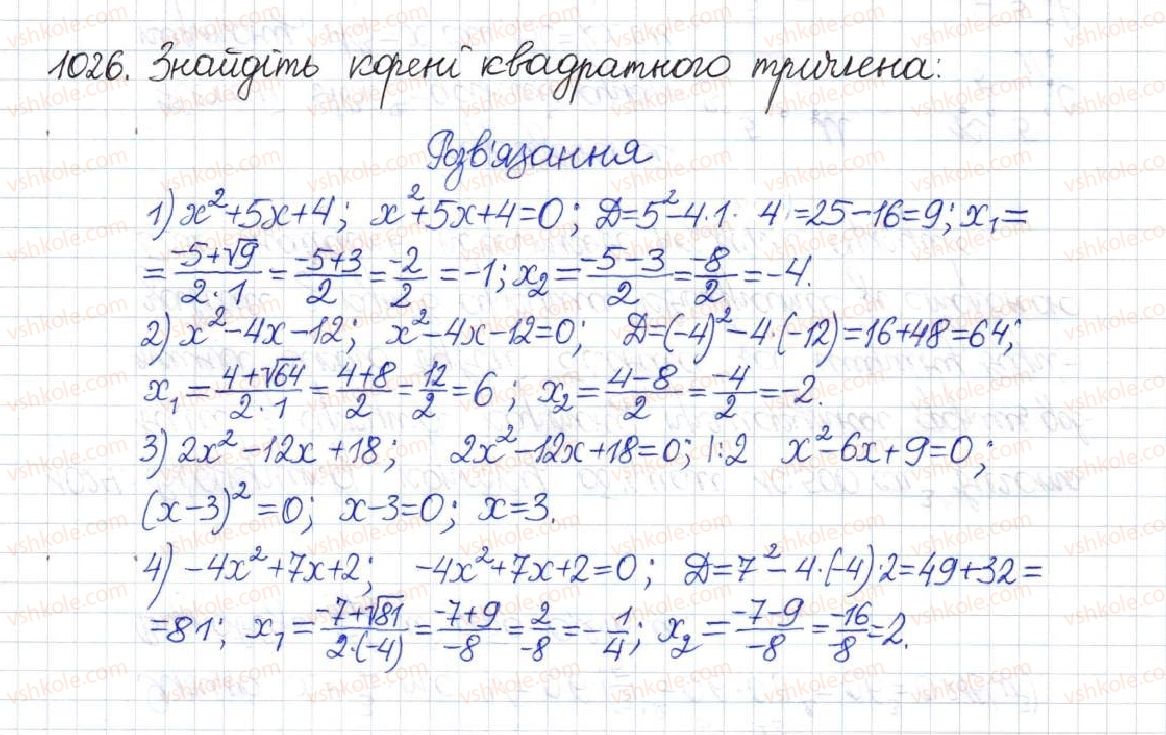 1026. Знайдіть корені квадратного тричлена:
Розв'язання
1) x²+5x+4; x²+5x+4=0; Д=5²-4·1· 4·=25-16=9; x₁=
=(-5+√9)/(2·1)=(-5+3)/2=-2/2=-1; x₂=(-5-3)/2=-8/2=-4.
2) x²-4x-12; x²-4x-12=0; Д=(-4)²-4·(-12)=16+48=64;
x₁=(4+√64)/(2·1)=(4+8)/2=12/2=6; x₂=(4-8)/2=-4/2=-2.
3) 2x²-12x+18; 2x²-12x+18=0; |:2 x²-6x+9=0;
(x-3)²=0; x-3=0; x=3.
4) -4x²+7x+2; -4x²+7x+2=0; Д=7²-4·(-4)2=49+32=
=81; x₁=(-7+√81)/(2·(-4))=(-7+9)/-8=2/-8=-1/4; x₂=(-7-9)/-8=-16/-8=2.